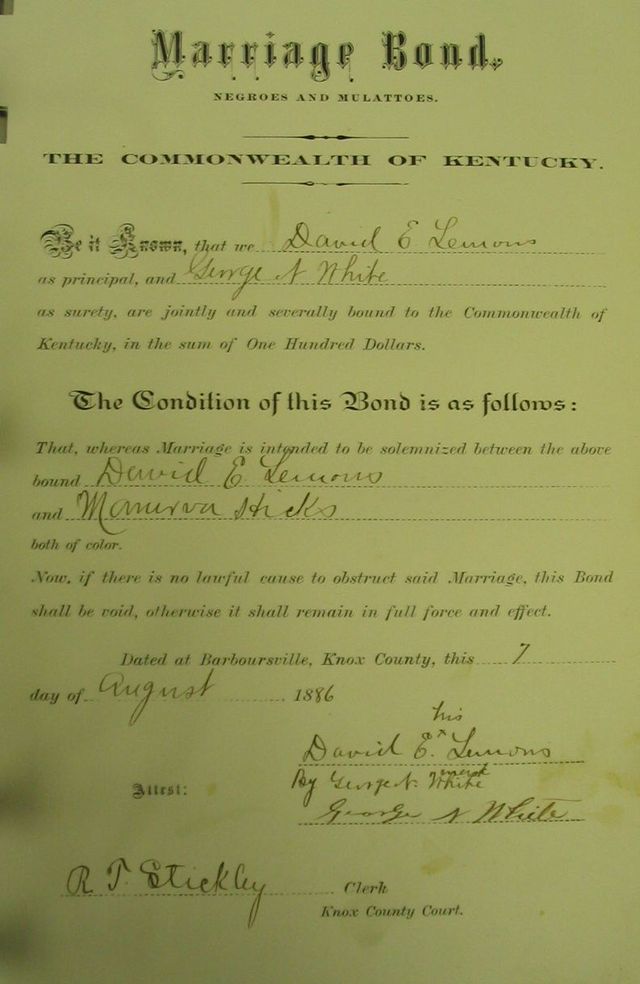 Marriage Bond.
NEGROES AND MULATTOES.
THE COMMONWEALTH OF KENTUCKY.
Be it Known, that we David E Lemons
as principal, and George N White
as surety, are jointly and severally bound to the Commonwealth of
Kentucky, in the sum of One Hundred Dollars.
The Condition of this Bond is as follows:
That, whereas Marriage is intended to be solemnized between the above
bound David E Lemons
and Manerva Hicks
both of color.
Now, if there is no lawful cause to obstruct said Marriage, this Bond
shall be void, otherwise it shall remain in full force and effect.
Dated at Barboursville, Knox County, this 7
day of August 1886
his
David E. x Lemons
mark
By George N. White
Attest:
George N White
R T Stickley Clerk
Knox County Court.